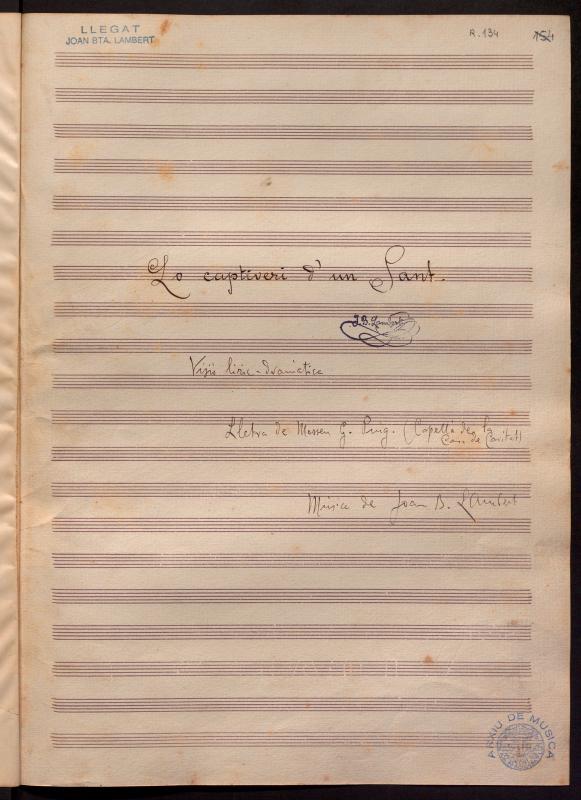 LLEGAT
JOAN BTA. LAMBERT
R.134
154
Lo captiveri d'un Sant.
J.B. Lambert
Visió líric-dramàtica
Lletra de Mossen G. Puig. (Capellà de la
Casa de Caritat)
Música de Joan B. Lambert
ARXIU DE MUSICA